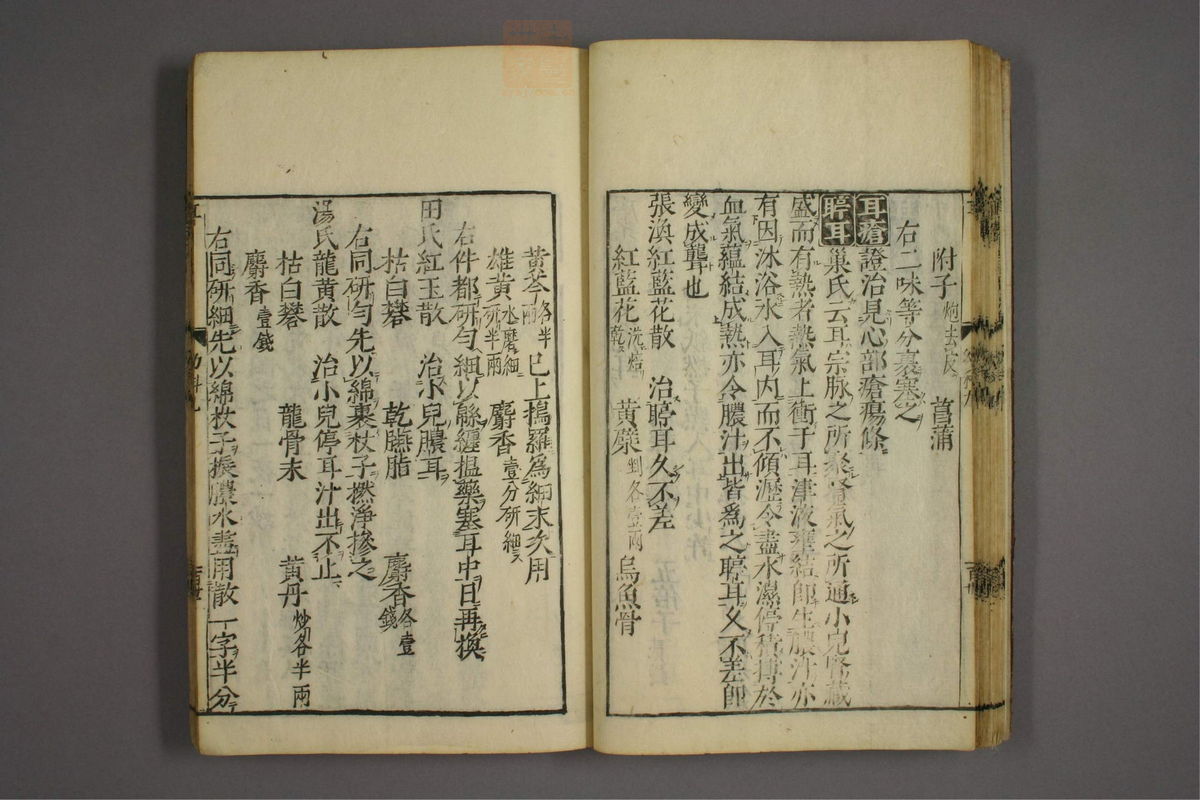 附子炮去皮 菖蒲
右二味等分裹塞之
耳瘡 證治見心部瘡瘍條
聤耳 巢氏云耳宗脉之所聚腎氣之所通小兒腎藏
盛而有熱者熱氣上衝于耳津液壅結即生膿汁亦
有因沐浴水入耳内而不傾瀝令盡水濕停積搏於
血氣蘊結成熱亦令膿汁出皆爲之聤耳久不差即
變成聾也
張渙紅藍花散 治聤耳久不差
紅藍花洗焙乾 黄蘗剉各壹兩 烏魚骨
黄芩各半兩 已上搗羅爲細末次用
雄黄水磨細研半兩 麝香壹分研細
右件都研勻細以緜纒揾藥塞耳中日再換
田氏紅玉散 治小兒膿耳
枯白礬 乾臙脂 麝香各壹錢
右同研勻先以綿裹杖子撚淨摻之
湯氏龍黄散 治小兒停耳汁出不止
枯白礬 龍骨末 黄丹炒各半兩
麝香壹錢
右同研細先以綿杖子捩膿水盡用散一字半分